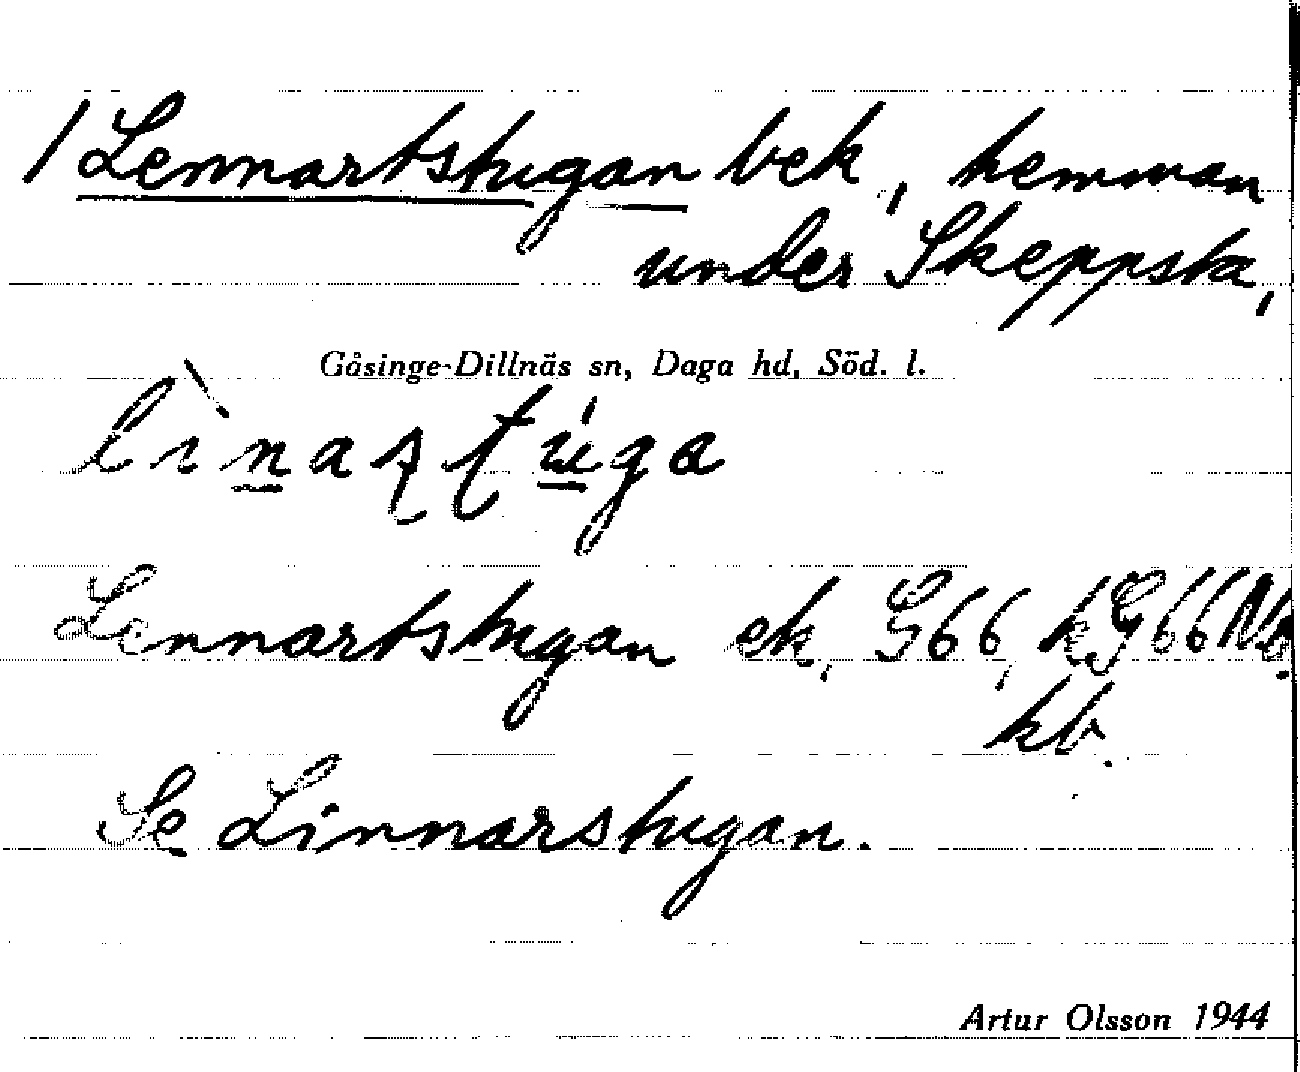 / Lennartstugan bek, hemman
under Skeppsta,
Gåsinge-Dillnäs sn, Daga hd, Söd. l.
Lennartstugan ek, G66, kG66
kb.
Se Linnarstugan.
Artur Olsson 1944